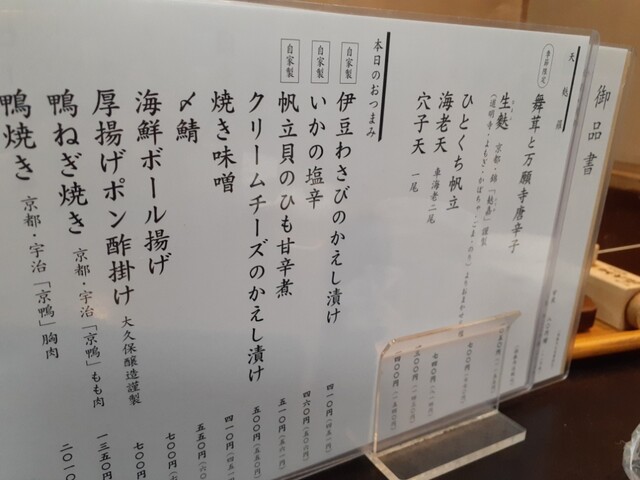 御品書
天麩羅
季節限定
舞茸と万願寺唐辛子
生麩
京都・錦「麩嘉」謹製
ひとくち帆立
七〇〇円
海老天
車海老二尾
穴子天
一尾
本日のおつまみ
自家製
伊豆わさびのかえし漬け
四一〇円(四五一円)
自家製
いかの塩辛
四六〇円(五〇六円)
自家製
帆立貝のひも甘辛煮
五一〇円(五六一円)
クリームチーズのかえし漬け
五〇〇円(五五〇円)
焼き味噌
四一〇円
〆鯖
五五〇円
海鮮ボール揚げ
七〇〇
厚揚げポン酢掛け
大久保醸造謹製
七〇〇円
鴨ねぎ焼き
京都・宇治「京鴨」もも肉
一三五〇円
鴨焼き
京都・宇治「京鴨」胸肉
二〇一〇